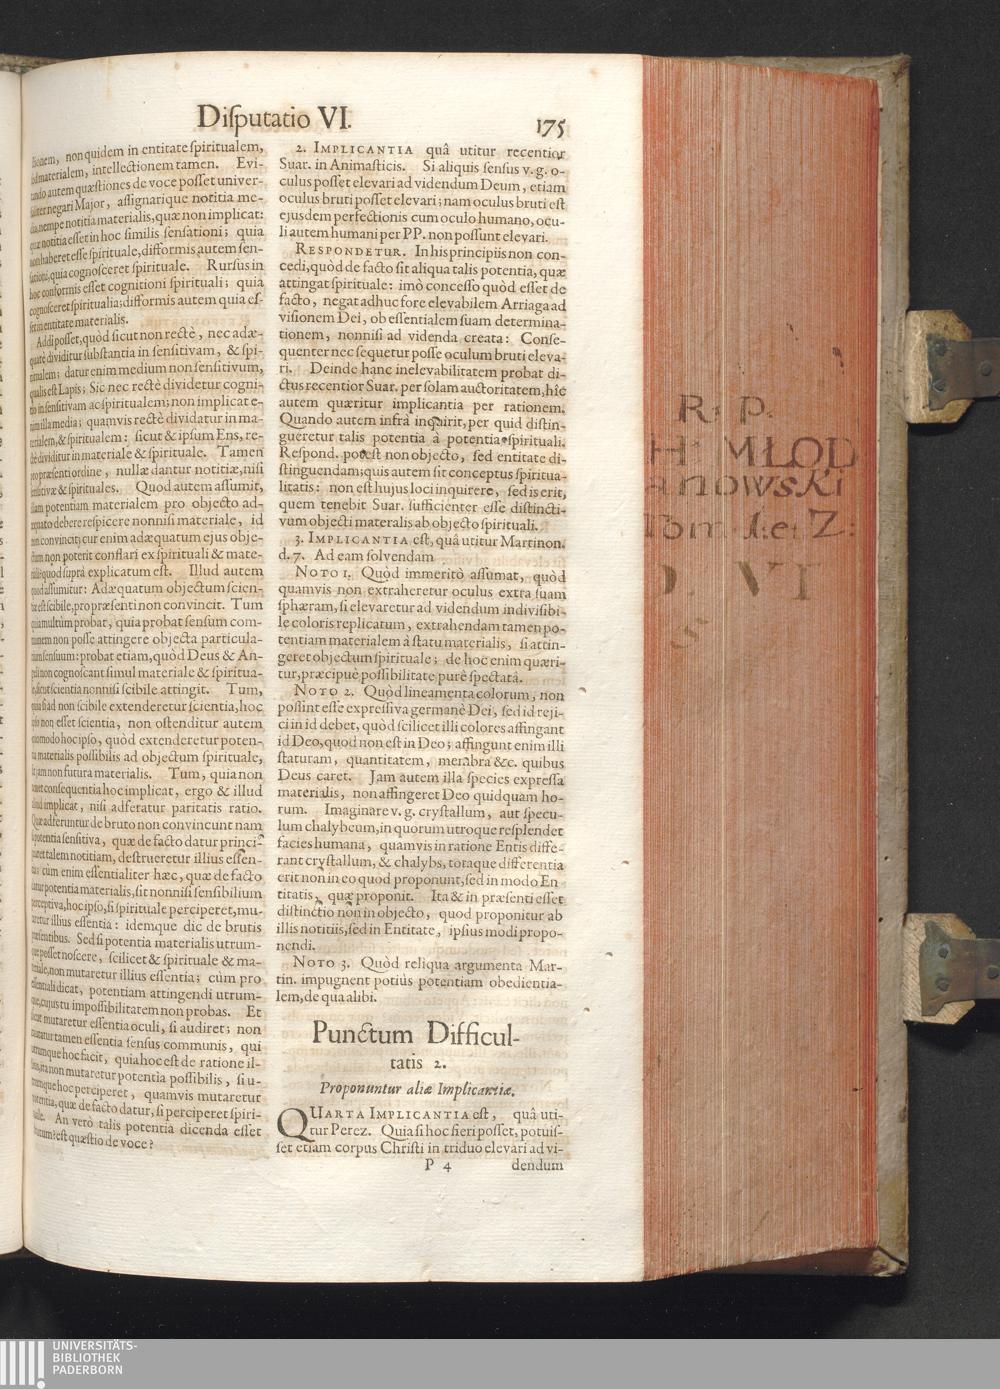 Disputatio VI.
175
ſionem, non quidem in entitate ſpiritualem,
materialem, intellectionem tamen. Evi-
autem quæſtiones de voce poſſet univer-
negari Major, aſſignarique notitia me-
nempe notitia materialis, quæ non implicat:
quæ notitia eſſet in hoc ſimilis ſenſationi; quia
non haberet eſſe ſpirituale, difformis autem ſen-
ſationi, quia cognoſceret ſpirituale. Rurſus in
hoc conformis eſſet cognitioni ſpirituali; quia
cognoſceret ſpiritualia; difformis autem quia eſ-
ſet in entitate materialis.
Addi poſſet, quòd ſicut non rectè, nec adæ-
quatè dividitur ſubſtantia in ſenſitivam, & ſpi-
ritualem; datur enim medium non ſenſitivum,
qualis eſt Lapis; Sic nec rectè dividetur cogni-
tio in ſenſitivam ac ſpiritualem; non implicat e-
nim illa media; quamvis rectè dividatur in ma-
terialem, & ſpiritualem: ſicut & ipſum Ens, re-
ctè dividitur in materiale & ſpirituale. Tamen
pro præſenti ordine, nullæ dantur notitiæ, niſi
ſenſitivæ & ſpirituales. Quod autem aſſumit,
illam potentiam materialem pro objecto ad-
æquato debere reſpicere nonniſi materiale, id
non convincit; cur enim adæquatum ejus obje-
ctum non poterit conflari ex ſpirituali & mate-
riali: quod ſuprà explicatum eſt. Illud autem
quod aſſumitur: Adæquatum objectum ſcien-
tiæ eſt ſcibile, pro præſenti non convincit. Tum
quia multùm probat, quia probat ſenſum com-
munem non poſſe attingere objecta particula-
rium ſenſuum: probat etiam, quòd Deus & An-
geli non cognoſcant ſimul materiale & ſpiritua-
le, ſicut ſcientia nonniſi ſcibile attingit. Tum,
quia ſi ad non ſcibile extenderetur ſcientia, hoc
ipſo non eſſet ſcientia, non oſtenditur autem
quomodo hoc ipſo, quòd extenderetur poten-
tia materialis poſſibilis ad objectum ſpirituale,
jam non futura materialis. Tum, quia non
valet conſequentia hoc implicat, ergo & illud
aliud implicat, niſi adferatur paritatis ratio.
Quæ adferuntur de bruto non convincunt nam
ſi potentia ſenſitiva, quæ de facto datur princi-
paret talem notitiam, deſtrueretur illius eſſen-
tia: cùm enim eſſentialiter hæc, quæ de facto
datur potentia materialis, ſit nonniſi ſenſibilium
perceptiva, hoc ipſo, ſi ſpirituale perciperet, mu-
taretur illius eſſentia: idemque dic de brutis
præſentibus. Sed ſi potentia materialis utrum-
que poſſet noſcere, ſcilicet & ſpirituale & ma-
teriale, non mutaretur illius eſſentia; cùm pro
eſſentiali dicat, potentiam attingendi utrum-
que, cujus tu impoſſibilitatem non probas. Et
ſicut mutaretur eſſentia oculi, ſi audiret; non
mutatur tamen eſſentia ſenſus communis, qui
utrumque hoc facit, quia hoc eſt de ratione il-
lius, ita non mutaretur potentia poſſibilis, ſi u-
trumque hoc perciperet, quamvis mutaretur
potentia, quæ de facto datur, ſi perciperet ſpiri-
tuale. An verò talis potentia dicenda eſſet
eſt quæſtio de voce?
2. IMPLICANTIA quâ utitur recentior
Suar. in Animaſticis. Si aliquis ſenſus v. g. o-
culus poſſet elevari ad videndum Deum, etiam
oculus bruti poſſet elevari; nam oculus bruti eſt
ejusdem perfectionis cum oculo humano, ocu-
li autem humani per PP. non poſſunt elevari.
RESPONDETUR. In his principiis non con-
cedi, quòd de facto ſit aliqua talis potentia, quæ
attingat ſpirituale: imò conceſſo quòd eſſet de
facto, negat adhuc fore elevabilem Arriaga ad
viſionem Dei, ob eſſentialem ſuam determina-
tionem, nonniſi ad videnda creata: Conſe-
quenter nec ſequetur poſſe oculum bruti eleva-
ri. Deinde hanc inelevabilitatem probat di-
ctus recentior Suar. per ſolam auctoritatem, hîc
autem quæritur implicantia per rationem.
Quando autem infrà inquirit, per quid diſtin-
gueretur talis potentia à potentia ſpirituali.
Reſpond. poteſt non objecto, ſed entitate di-
ſtinguendam; quis autem ſit conceptus ſpiritua-
litatis: non eſt hujus loci inquirere, ſed is erit,
quem tenebit Suar. ſufficienter eſſe diſtincti-
vum objecti materalis ab objecto ſpirituali.
3. IMPLICANTIA eſt, quâ utitur Martinon.
d. 7. Ad eam ſolvendam
NOTO 1. Quòd immeritò aſſumat, quòd
quamvis non extraheretur oculus extra ſuam
ſphæram, ſi elevaretur ad videndum indiviſibi-
le coloris replicatum, extrahendam tamen po-
tentiam materialem à ſtatu materialis, ſi attin-
geret objectum ſpirituale; de hoc enim quæri-
tur, præcipuè poſſibilitate purè ſpectatâ.
NOTO 2. Quòd lineamenta colorum, non
poſſint eſſe expreſſiva germanè Dei, ſed id reji-
ci in id debet, quòd ſcilicet illi colores affingant
id Deo, quod non eſt in Deo; affingunt enim illi
ſtaturam, quantitatem, membra &c. quibus
Deus caret. Jam autem illa ſpecies expreſſa
materialis, non affingeret Deo quidquam ho-
rum. Imaginare v. g. cryſtallum, aut ſpecu-
lum chalybeum, in quorum utroque reſplendet
facies humana, quamvis in ratione Entis diffe-
rant cryſtallum, & chalybs, totaque differentia
erit non in eo quod proponunt, ſed in modo En
titatis, quæ proponit. Ita & in præſenti eſſet
diſtinctio non in objecto, quod proponitur ab
illis notitiis, ſed in Entitate, ipſius modi propo-
nendi.
NOTO 3. Quòd reliqua argumenta Mar-
tin. impugnent potiùs potentiam obedientia-
lem, de qua alibi.
Punctum Difficul-
tatis 2.
Proponuntur aliæ Implicantiæ.
QUARTA IMPLICANTIA eſt, quâ uti-
tur Perez. Quia ſi hoc fieri poſſet, potuiſ-
ſet etiam corpus Chriſti in triduo elevari ad vi-
P 4
dendum
R. P.
MŁOD
anowski
Tom 1: et 2:
VI
5
UNIVERSITÄTS-
BIBLIOTHEK
PADERBORN